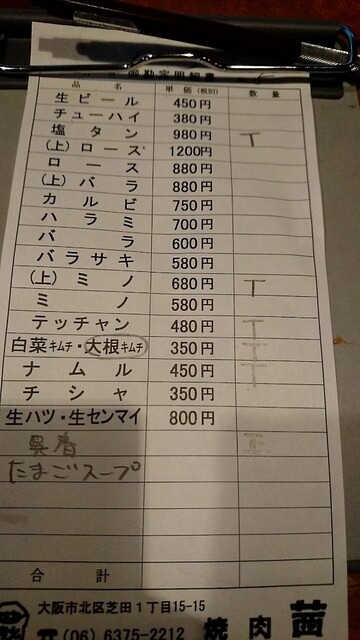 御勘定明細書
品名 単価(税別) 数量
生ビール 450円
チューハイ 380円
塩タン 980円 T
(上)ロース 1200円
ロース 880円
(上)バラ 880円
カルビ 750円
ハラミ 700円
バラ 600円
バラサキ 580円
(上)ミノ 680円 T
ミノ 580円
テッチャン 480円 T
白菜キムチ・大根キムチ 350円 T
ナムル 450円 T
チシャ 350円
生ハツ・生センマイ 800円
たまごスープ
合計
大阪市北区芝田1丁目15-15
☎(06)6375-2212 焼肉 茜